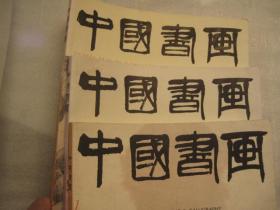 中國書画
中國書画
中國書画